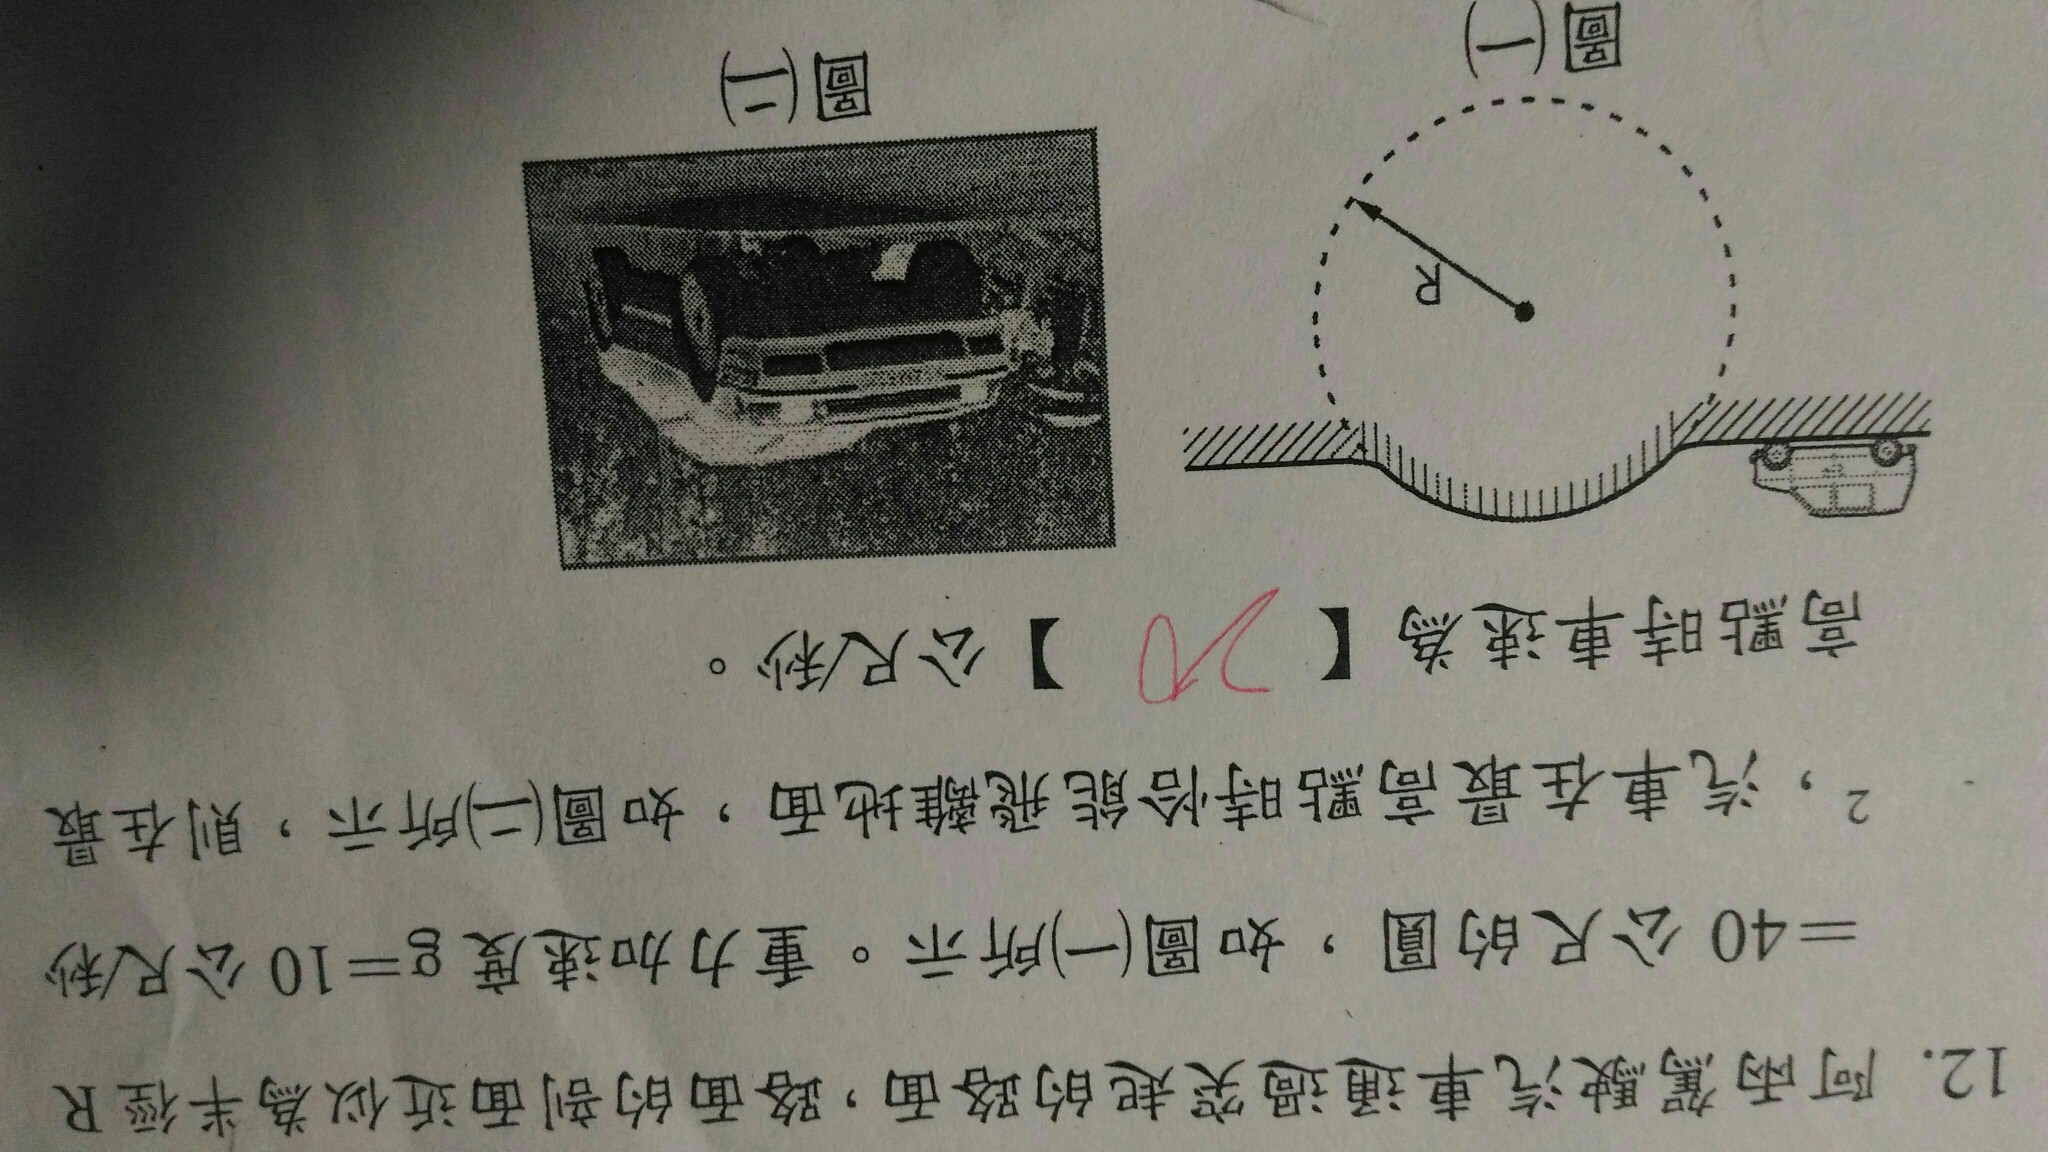 12. 阿雨駕駛汽車通過突起的路面，路面的剖面近似為半徑 R
=40 公尺的圓，如圖(一)所示。重力加速度 g=10 公尺/秒
2，汽車在最高點時恰能飛離地面，如圖(二)所示，則在最
高點時車速為【 20 】公尺/秒。
R
圖(一)
圖(二)